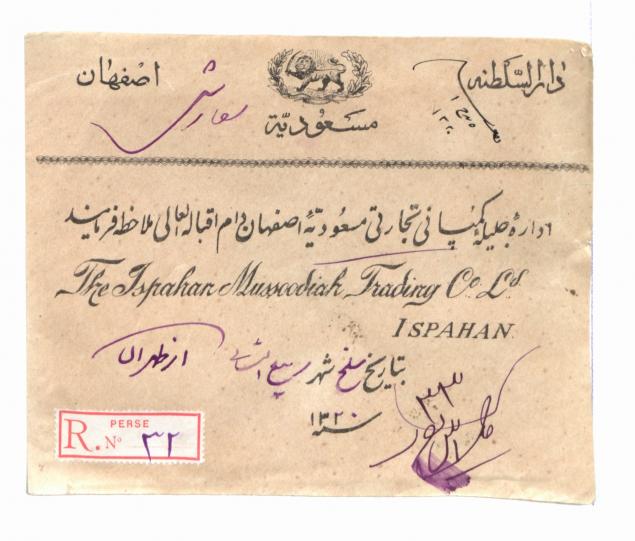 دارالسلطنه
اصفهان
سفارشی
مسعودیّه
اداره جلیله کمپانی تجارتی مسعودیّه اصفهان دام اقباله العالی ملاحظه فرمایند
The Ispahan Mussoodiah Trading Co. Ld.
ISPAHAN
از طهران
بتاریخ سلخ شهر ربیع الثانی
سنه ۱۳۲۰
PERSE
R. No ۳۲